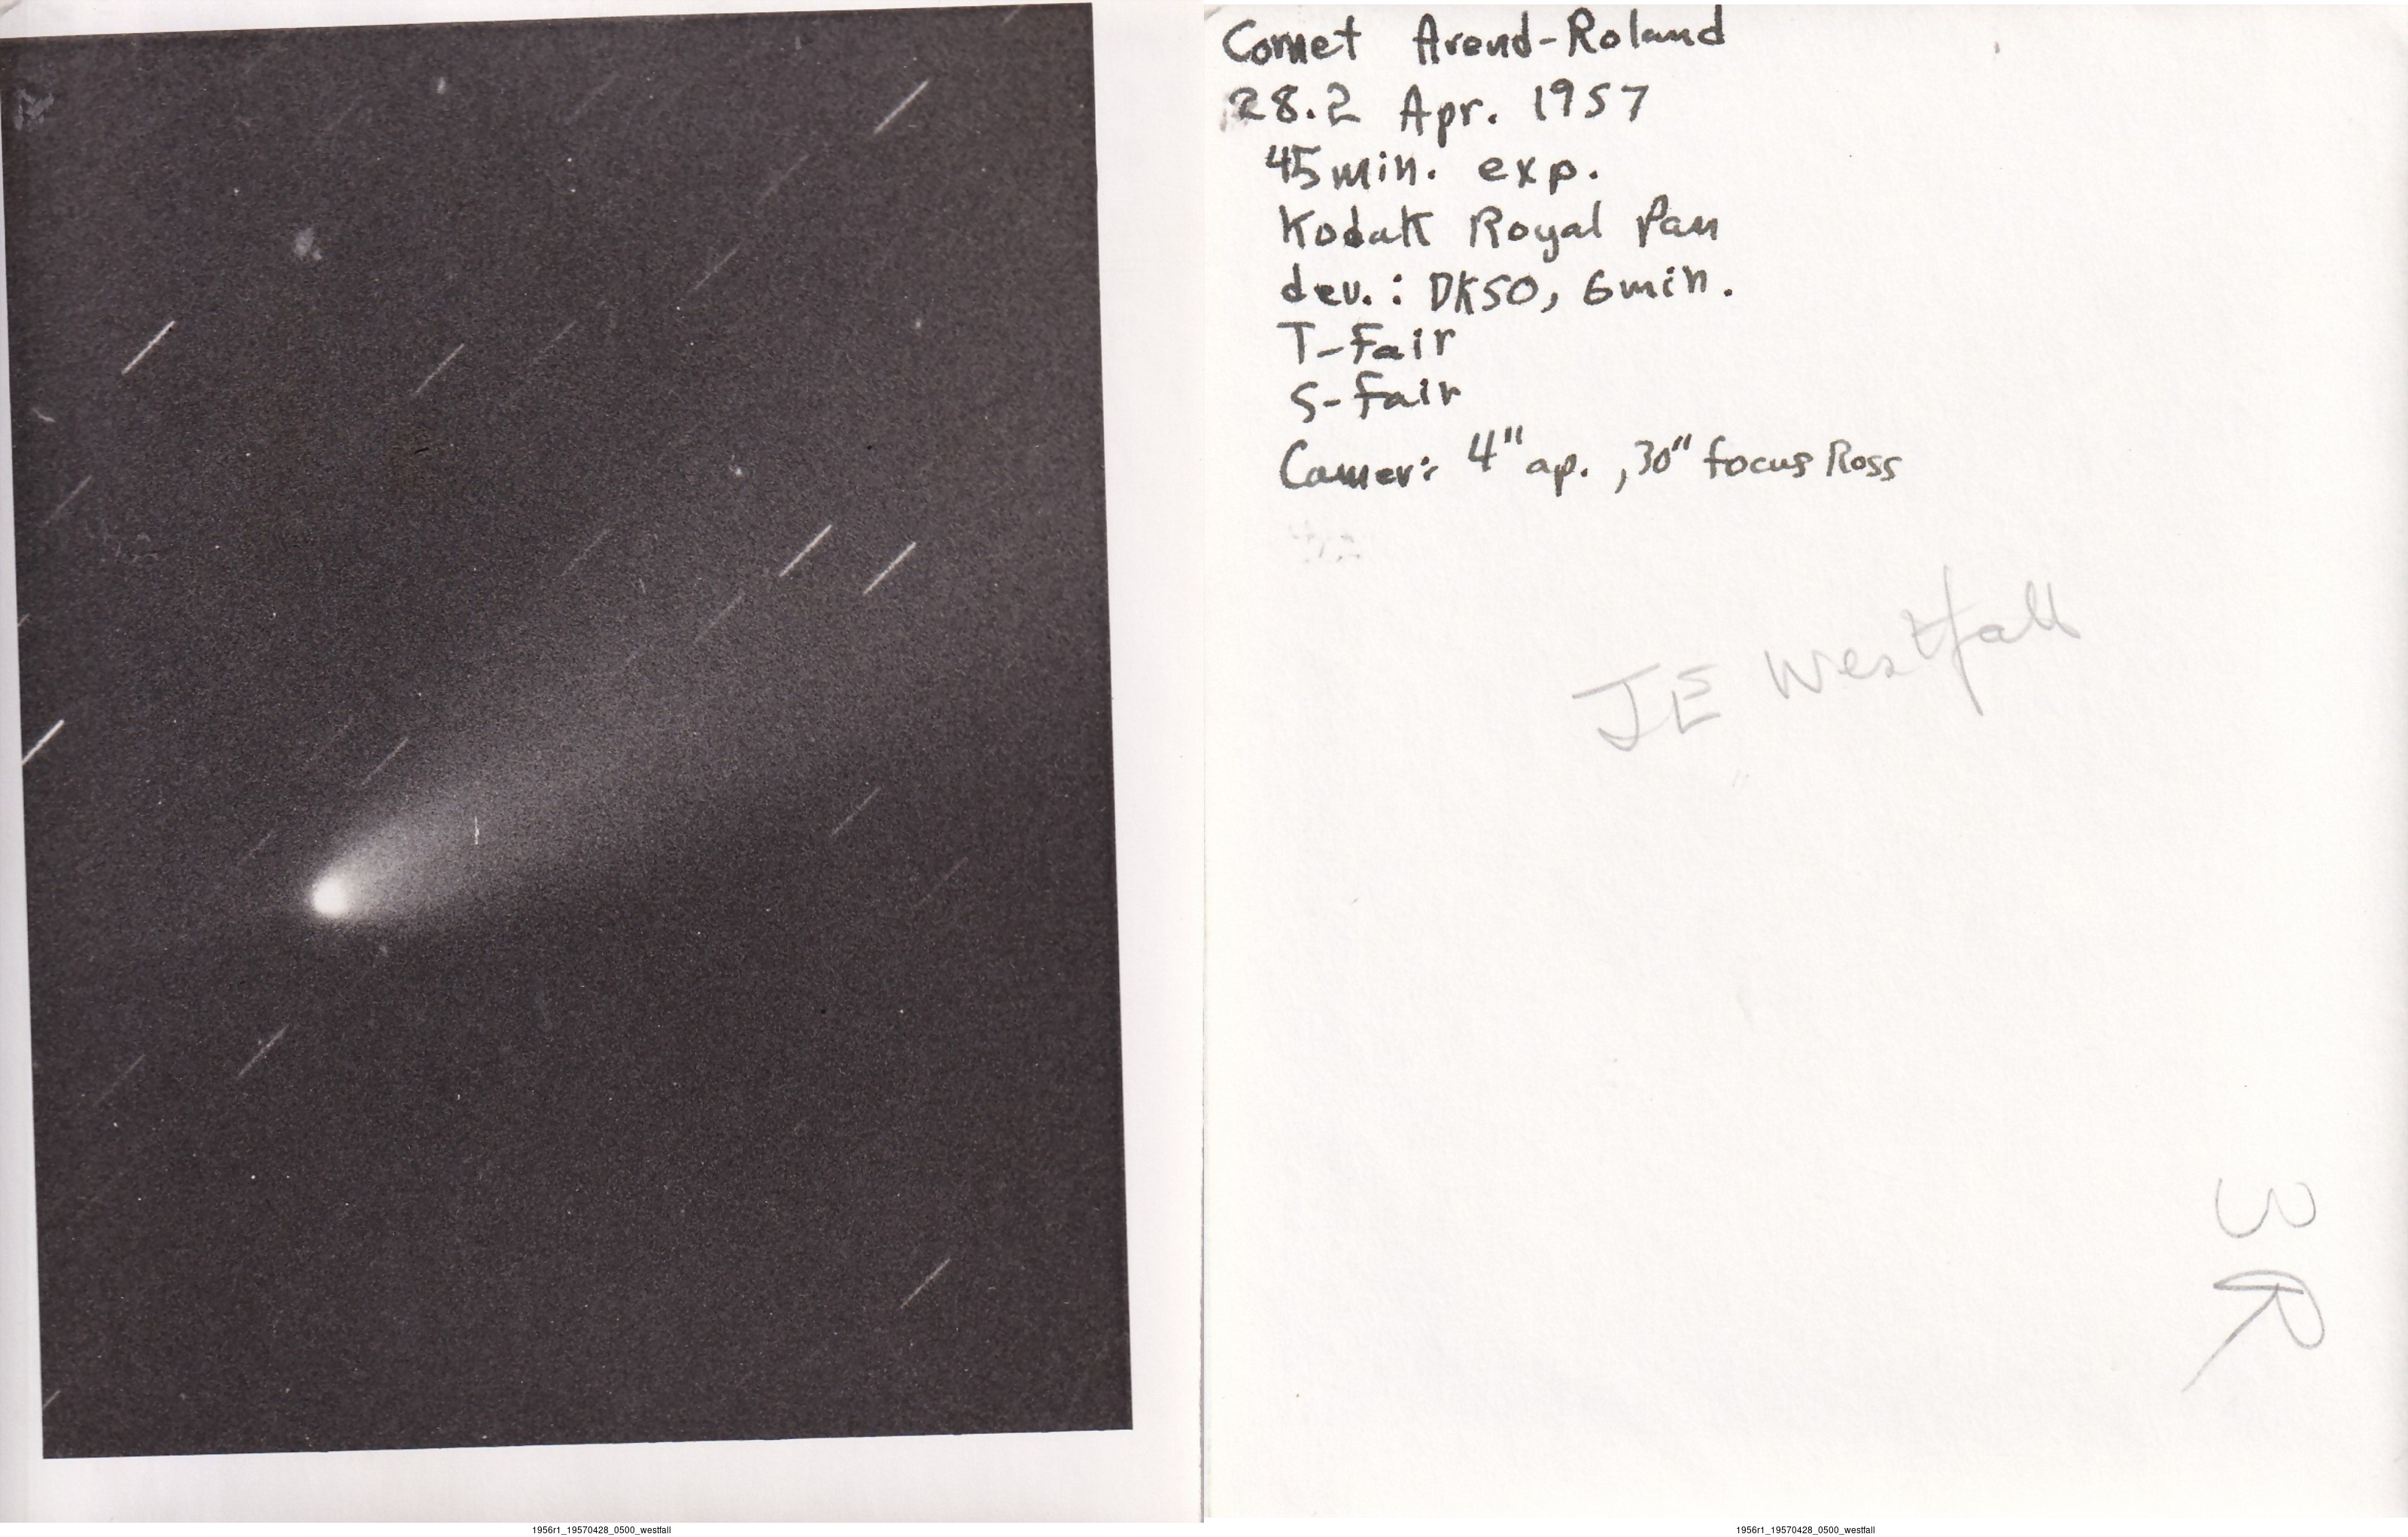 Comet Arend-Roland
28.2 Apr. 1957
45min. exp.
Kodak Royal Pan
dev.: DK50, 6min.
T-Fair
S-Fair
Camer: 4" ap., 30" focus Ross
JE Westfall
3R
1956r1_19570428_0500_westfall
1956r1_19570428_0500_westfall